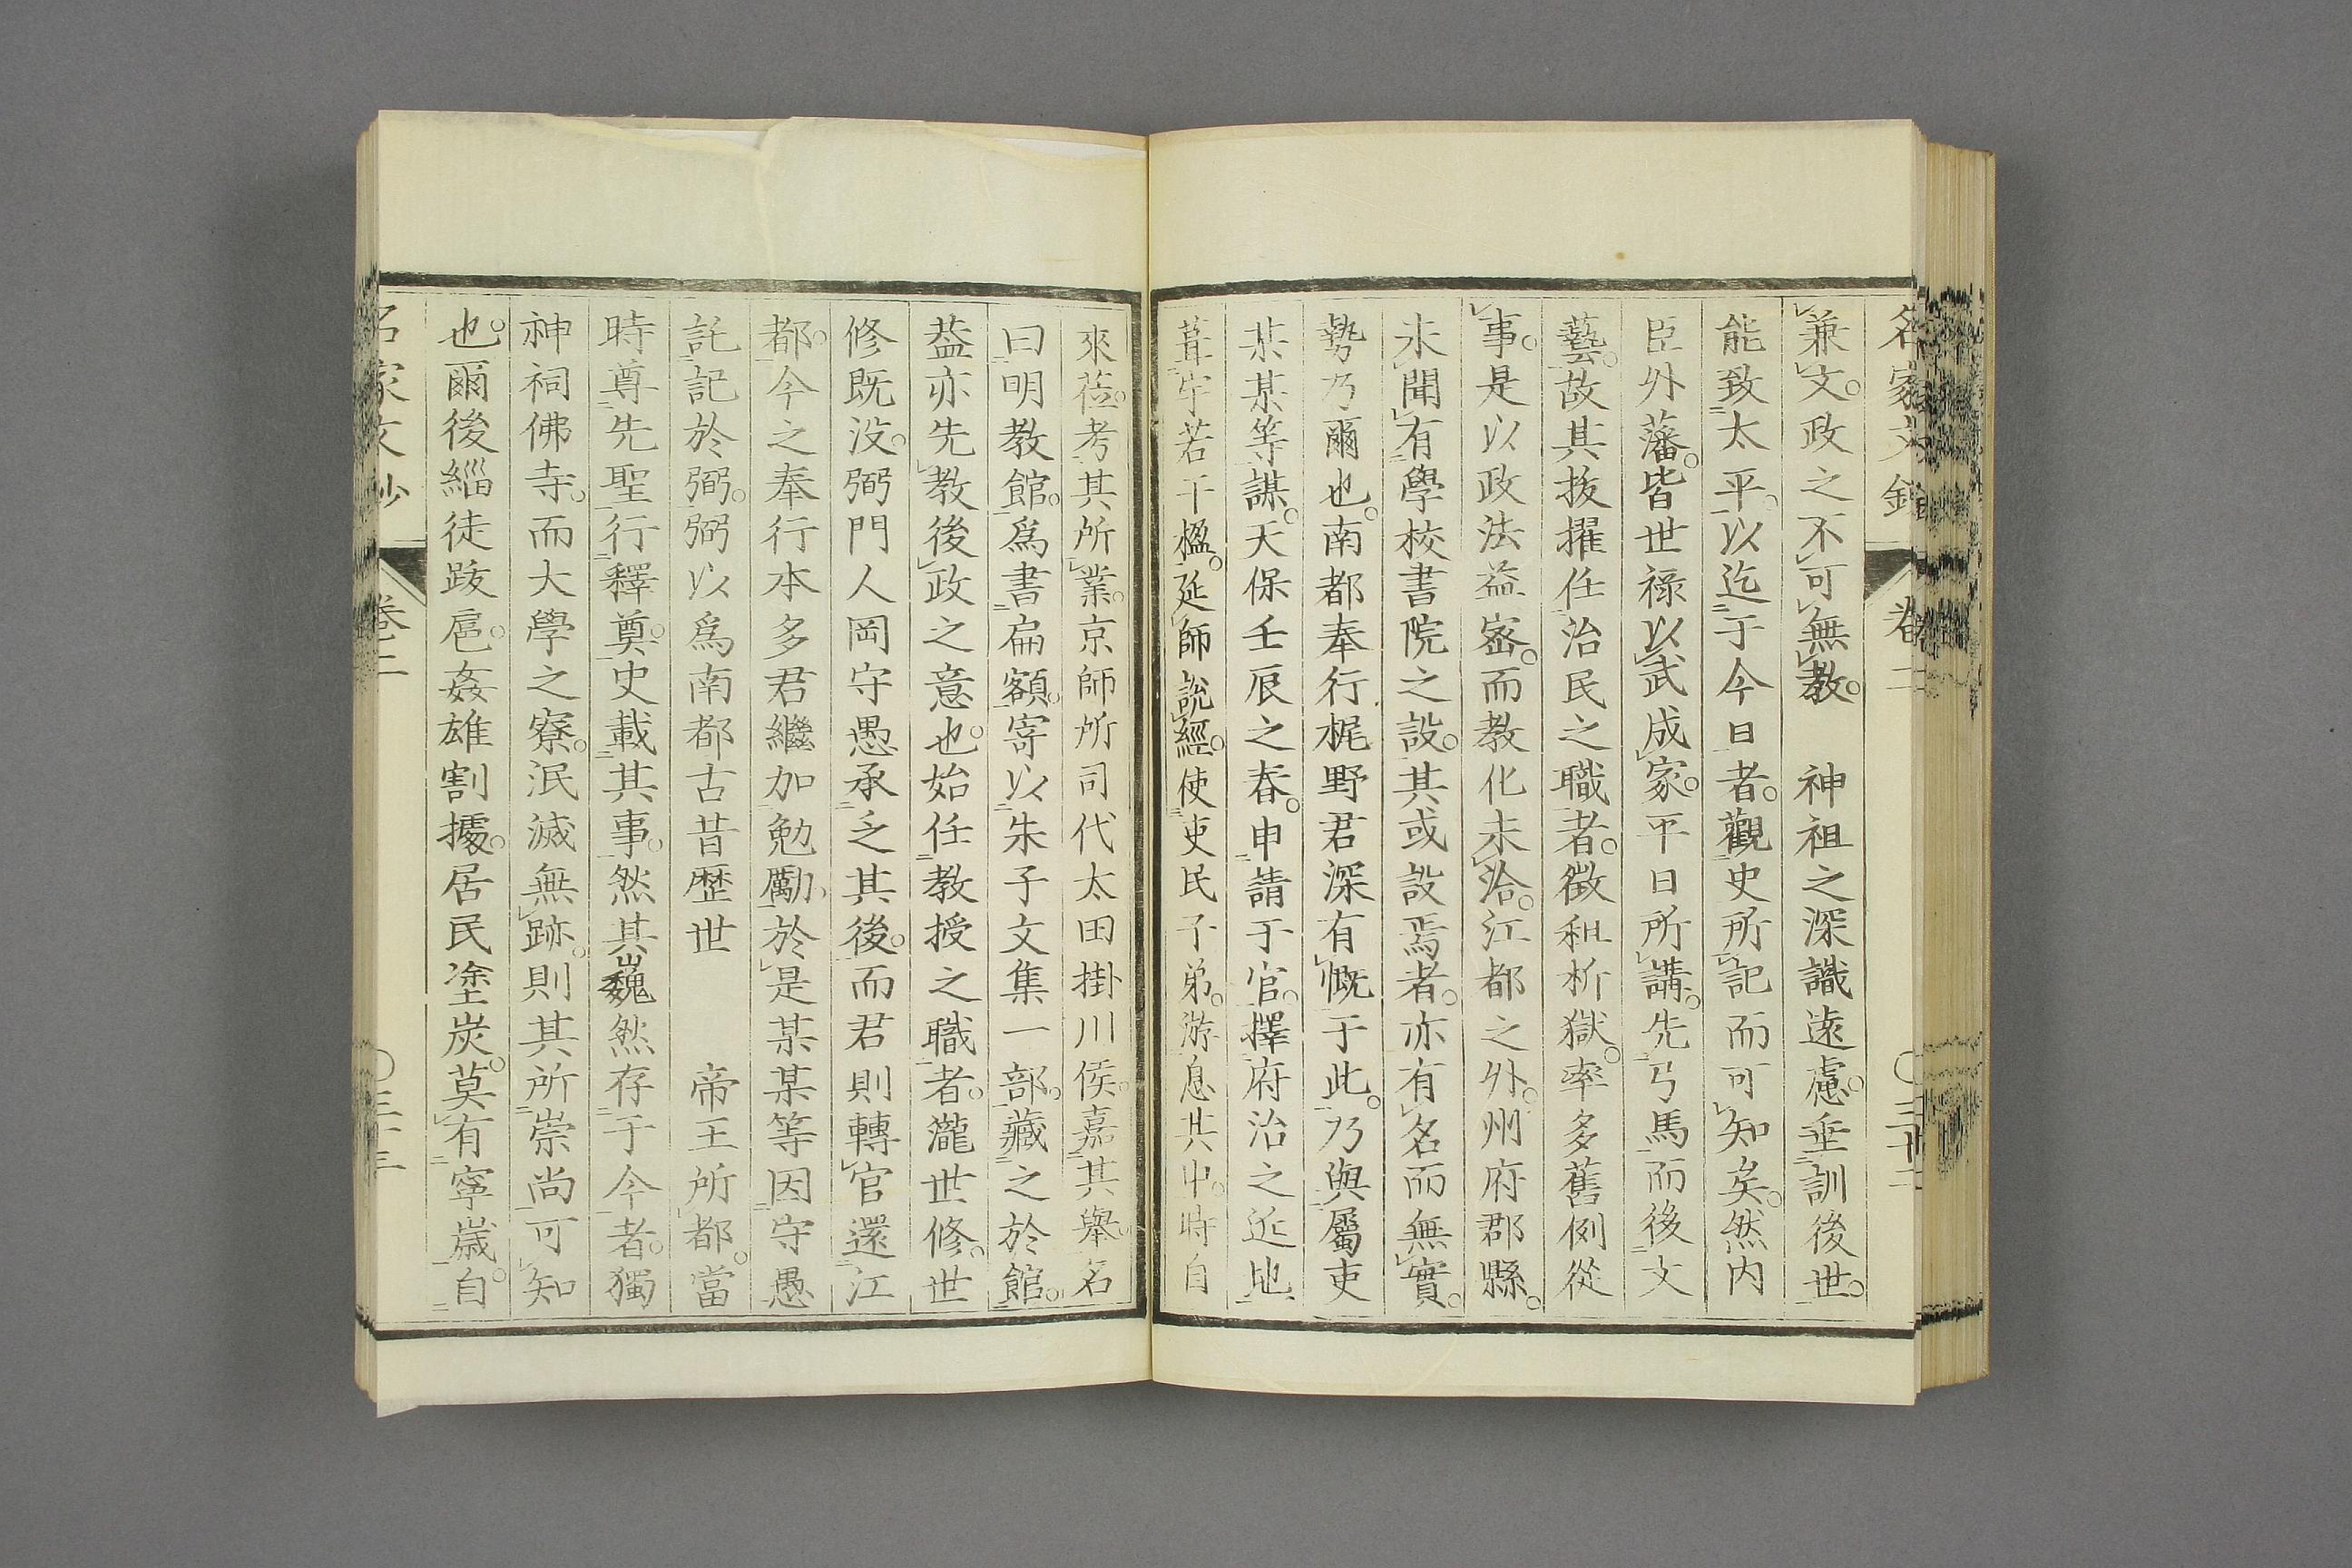 名家文鈔 卷二 〇三十二
兼文。政之不可無教。 神祖之深識遠慮。垂訓後世。
能致太平。以迄于今日者。觀史所記而可知矣。然内
臣外藩。皆世祿以武成家。平日所講。先弓馬而後文
藝。故其拔擢任治民之職者。徵租析獄。率多舊例從
事。是以政法益密。而教化未洽。江都之外。州府郡縣。
未聞有學校書院之設。其或設焉者。亦有名而無實。
勢乃爾也。南都奉行梶野君深有慨于此。乃與屬吏
某某等謀。天保壬辰之春。申請于官。擇府治之近地。
葺宇若干楹。延師說經。使吏民子弟。游息其中。時自
來莅。考其所業。京師所司代太田掛川侯。嘉其擧。名
曰明教館。爲書扁額。寄以朱子文集一部。藏之於館。
葢亦先教後政之意也。始任教授之職者。瀧世修。世
修既沒。弼門人岡守愚承乏其後。而君則轉官還江
都。今之奉行本多君繼加勉勵。於是某某等因守愚
託記於弼。弼以爲南都古昔歷世 帝王所都。當
時尊先聖。行釋奠。史載其事。然其巍然存于今者。獨
神祠佛寺。而大學之寮。泯滅無跡。則其所崇尚可知
也。爾後緇徒跋扈。姦雄割據。居民塗炭。莫有寧歲。自
名家文鈔 卷二 〇三十三